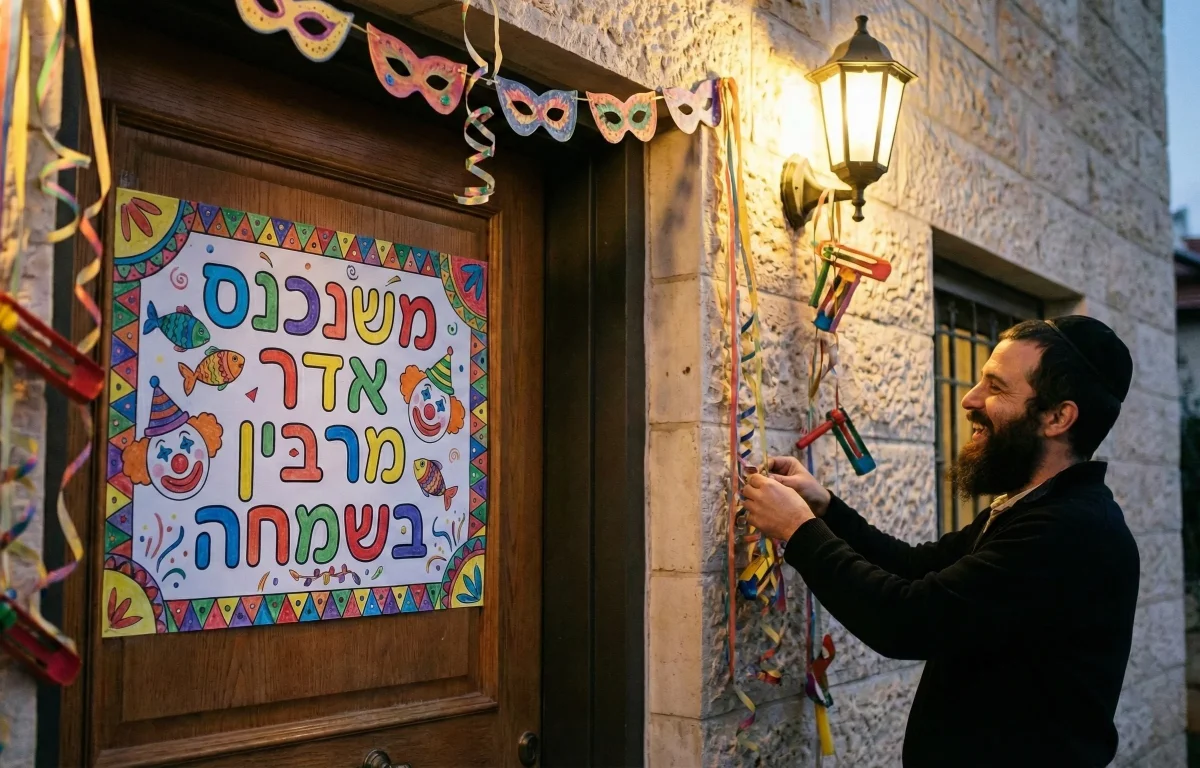 משנכנס
אדר
מרבין
בשמחה